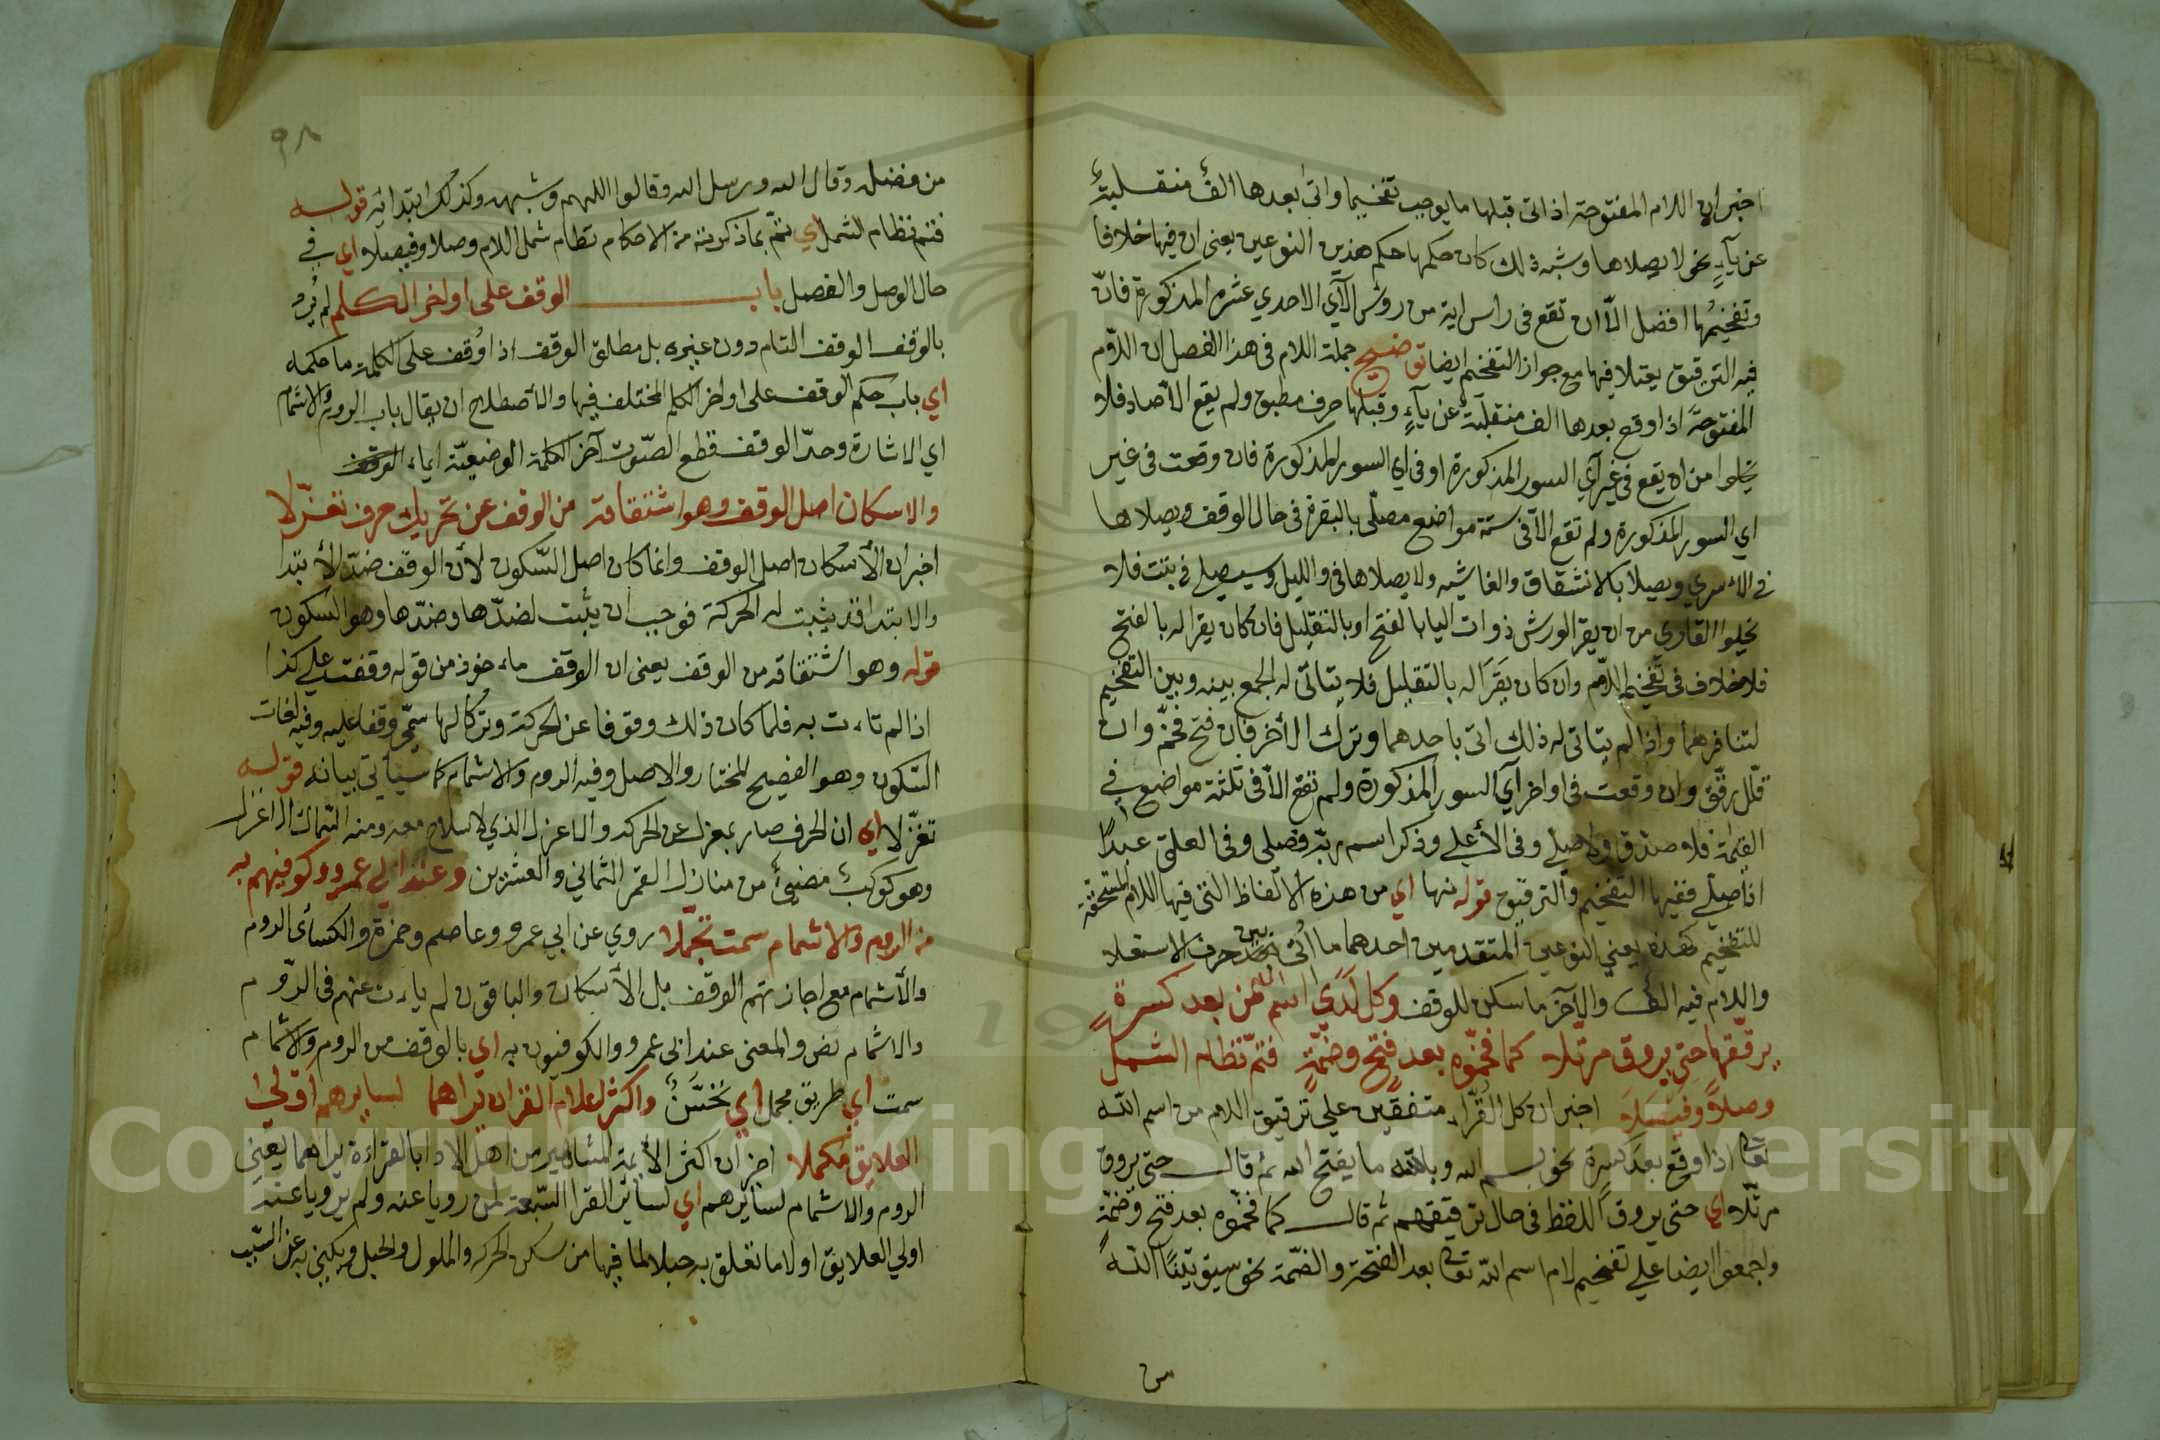 اخبر ان اللام المفتوحة اذا اتى قبلها ما يوجب تفخيما واتى بعدها الفٌ منقلبةٌ
عن يآءٍ نحو لا يصلاها وشبه ذلك كان حكمها حكم هذين النوعين يعنى ان فيها خلافا
وتفخيمُها افضل الّا ان تقع فى راس اية من روٗس الآي الاحدي عشرة المذكورة فانّ
فيه الترقيق يعتلا فيها مع جواز التفخيم ايضا توضيح جملة اللام فى هذا الفصل ان اللّام
المفتوحة اذا وقع بعدها الف منقلبة عن يآءٍ وقبلها حرف مطبق ولم يقع الّا صاد فلا
يخلوا من ان يقع فى غير آي السور المذكورة او فى اي السور المذكورة فان وقعت فى غير
اي السور المذكورة ولم تقع الّا فى ستة مواضع مصلّى بالبقرة فى حال الوقف ويصلاها
في الاسري ويصلا بالانشقاق والغاشيه ولا يصلاها فى والليل وسيصلي في تبت فلا
يخلوا القاري من ان يقرا لورش ذوات اليا بالفتح او بالتقليل فان كان يقرا له بالفتح
فلا خلاف فى تفخيم اللّام وان كان يَقرَا له بالتقليل فلا يتاتى له الجمع بينه وبين التفخيم
لتنافرهما واذا لم يتاتى له ذلك اتى باحدهما وترك الأخر فان فتح فخّم وان
قلّل رقّق وان وقعت فى اواخر آي السور المذكورة ولم تقع الّا فى ثلثة مواضع في
القيٰمة فلا صدّق ولا صلي وفى الأعلي وذكر اسم ربّه فصلى وفى العلق عبدًا
اذا صلّي ففيها التفخيم والترقيق قوله منها اي من هذه الالفاظ التى فيها اللام المستحقة
للتفخيم كهذه يعني النوعين المتقدمين احدهما ما اُتى بين حرف الاستعلا
واللام فيه الف والآخر ما سكن للوقف وكل لَدَي اسم الله من بعد كسرةٍ
يرقّقها حتى يروق مرتّلا كما فخّموه بعد فتحٍ وضمّةٍ فتمّ نظام الشمل
وصلاً وفيصلا اخبر ان كل القُرّاء متفقين علي ترقيق اللام من اسم اللّه
تعالى اذا وقع بعد كسرة نحو بسم الله وبالله ما يفتح الله ثم قال حتى يروق
مرتّلا اي حتى يروق اللفظ فى حال ترقيقهم ثم قال كما فخّموه بعد فتح وضمّةٍ
واجمعوا ايضا علي تفخيم لام اسم اللّه تعالى بعد الفتحة والضّمة نحو سيؤتينا اللّه
من
٩٨
من فضله وقال الله ورسل الله وقالوا اللهم وشبهه وكذلك ابتدائه قوله
فتم نظام الشمل اي تتمّ بما ذكرته من الاحكام نظام شمل اللام وصلا وفيصلا اي في
حال الوصل والفصل باب الوقف على اواخر الكلم لم يُرد
بالوقف الوقف التام دون غيره بل مطلق الوقف اذا وُقف على الكلمة ما حكمه
اي باب حكم الوقف على اواخر الكلم المختلف فيها والأصطلاح ان يقال باب الروم والاشمام
اي الاشارة وحدّ الوقف قطع الصّوت آخر الكلمة الوضعيّة ايماء الوقف
والاسكان اصل الوقف وهو اشتقاقه من الوقف عن تحريك حرف تعزّلا
اخبر ان الأسكان اصل الوقف وانما كان اصل السّكون لأن الوقف ضدّ الأبتدا
والابتدا قد يثبت له الحركة فوجب ان يثبت لضدّها وضدّها وهو السكون
قوله وهو اشتقاقه من الوقف يعنى ان الوقف ماءخوذ من قوله وقفت علي كذا
اذا لم تاءت به فلما كان ذلك وقوفا عن الحركة وتركا لها سمّي وقفا عليه وفيه لغات
السّكون وهو الفصيح المختار والاصل وفيه الروم والاشمام كما سياتي بيانه قوله
تعزّلا اي ان الحرف صار بمعزل عن الحركة والاعزل الذي لا سلاح معه ومنه السّماك الاعزل
وهو كوكبٌ مضيئٌ من منازل القمر الثمانى والعشرين وعند ابي عمرو وكوفيهم به
من الروم والاشمام سمت تجمّلا روي عن ابي عمرو وعاصم وحمزة والكسائى الروم
والأشمام مع اجازتهم الوقف بل الأسكان والباقون لم ياءت عنهم فى الرّوم
والاشمام نص والمعنى عند ابى عمرو والكوفيون به اي بالوقف من الروم والاشمام
سمت اي طريق مجمل اي تحسّن واكثر اعلام القران يراهما لسايرهم اولي
العلايق مكملا اخبر ان اكثر الأيمة المشاهير من اهل الادا بالقراءة يراهما يعنى
الروم والاشمام لسائرهم اي لسائر القرا السّبعة لمن رويا عنه ولم يرويا عنه
اولي العلايق اولا ما تعلق به حبلا لما فيها من سكن الحركه والملول والحبل ويكنى به عن السّبب